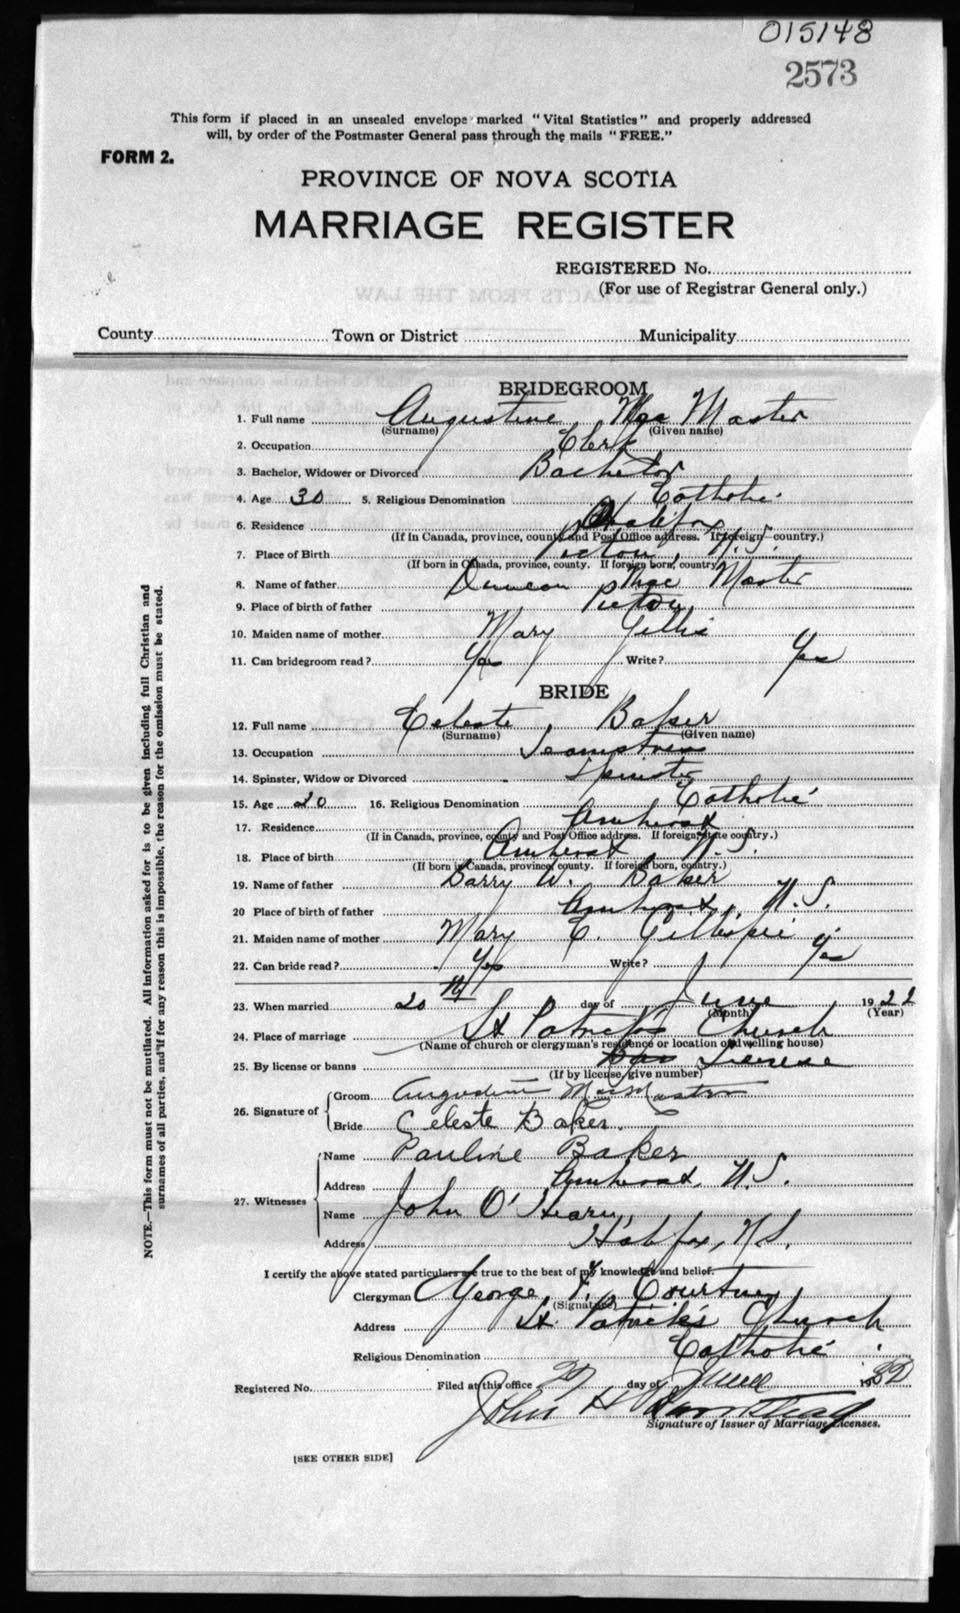 015148
2573
This form if placed in an unsealed envelope marked "Vital Statistics" and properly addressed
will, by order of the Postmaster General pass through the mails "FREE."
FORM 2.
PROVINCE OF NOVA SCOTIA
MARRIAGE REGISTER
REGISTERED No.
(For use of Registrar General only.)
County Town or District Municipality
BRIDEGROOM
1. Full name Augustine Mac Master
(Surname) (Given name)
2. Occupation Clerk
3. Bachelor, Widower or Divorced Bachelor
4. Age 30 5. Religious Denomination Catholic
6. Residence Halifax
(If in Canada, province, county and Post Office address. If foreign country.)
7. Place of Birth Pictou, N.S.
(If born in Canada, province, county. If foreign born, country)
8. Name of father Duncan Mac Master
9. Place of birth of father Pictou
10. Maiden name of mother Mary Gillis
11. Can bridegroom read? Yes Write? Yes
BRIDE
12. Full name Celeste Baker
(Surname) (Given name)
13. Occupation Seamstress
14. Spinster, Widow or Divorced Spinster
15. Age 20 16. Religious Denomination Catholic
17. Residence Amherst
(If in Canada, province, county and Post Office address. If foreign, state country.)
18. Place of birth Amherst N.S.
(If born in Canada, province, county. If foreign born, country)
19. Name of father W. Baker
20 Place of birth of father Amherst, N.S.
21. Maiden name of mother Mary E. Gillispie
22. Can bride read? Yes Write? Yes
23. When married 20th day of June 1922
(Month) (Year)
24. Place of marriage St Patrick's Church
(Name of church or clergyman's residence or location of dwelling house)
25. By license or banns License
(If by license, give number)
26. Signature of Groom Augustine MacMaster
Bride Celeste Baker.
27. Witnesses Name Pauline Baker
Address Amherst, N.S.
Name John O'Hearn
Address Halifax, N.S.
I certify the above stated particulars are true to the best of my knowledge and belief.
Clergyman George F. Courtney
(Signature)
Address St. Patrick's Church
Religious Denomination Catholic
Registered No. Filed at this office day of June 19
John H
Signature of Issuer of Marriage Licenses.
[SEE OTHER SIDE]
NOTE.—This form must not be mutilated. All information asked for is to be given including full Christian and
surnames of all parties, and if for any reason this is impossible, the reason for the omission must be stated.